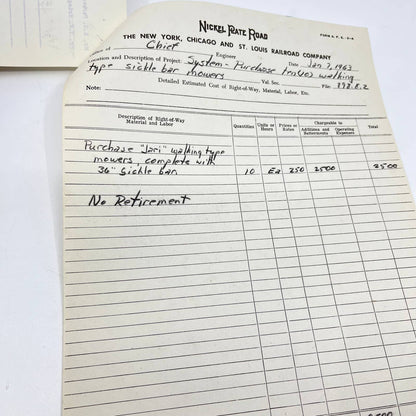 NICKEL PLATE ROAD
THE NEW YORK, CHICAGO AND ST. LOUIS RAILROAD COMPANY
of Chief Engineer Date Jan 7, 1963
Location and Description of Project: System - Purchase ten (10) walking
type sickle bar mowers Val. Sec. File
Detailed Estimated Cost of Right-of-Way, Material, Labor, Etc.
Note:
Description of Right-of-Way Material and Labor Quantities Units or Hours Prices or Rates Chargeable to Additions and Betterments Operating Expenses Total
Purchase "Jari" walking type
mowers, complete with
36" sickle bar 10 Ea 250 2500 2500
No Retirement
2500